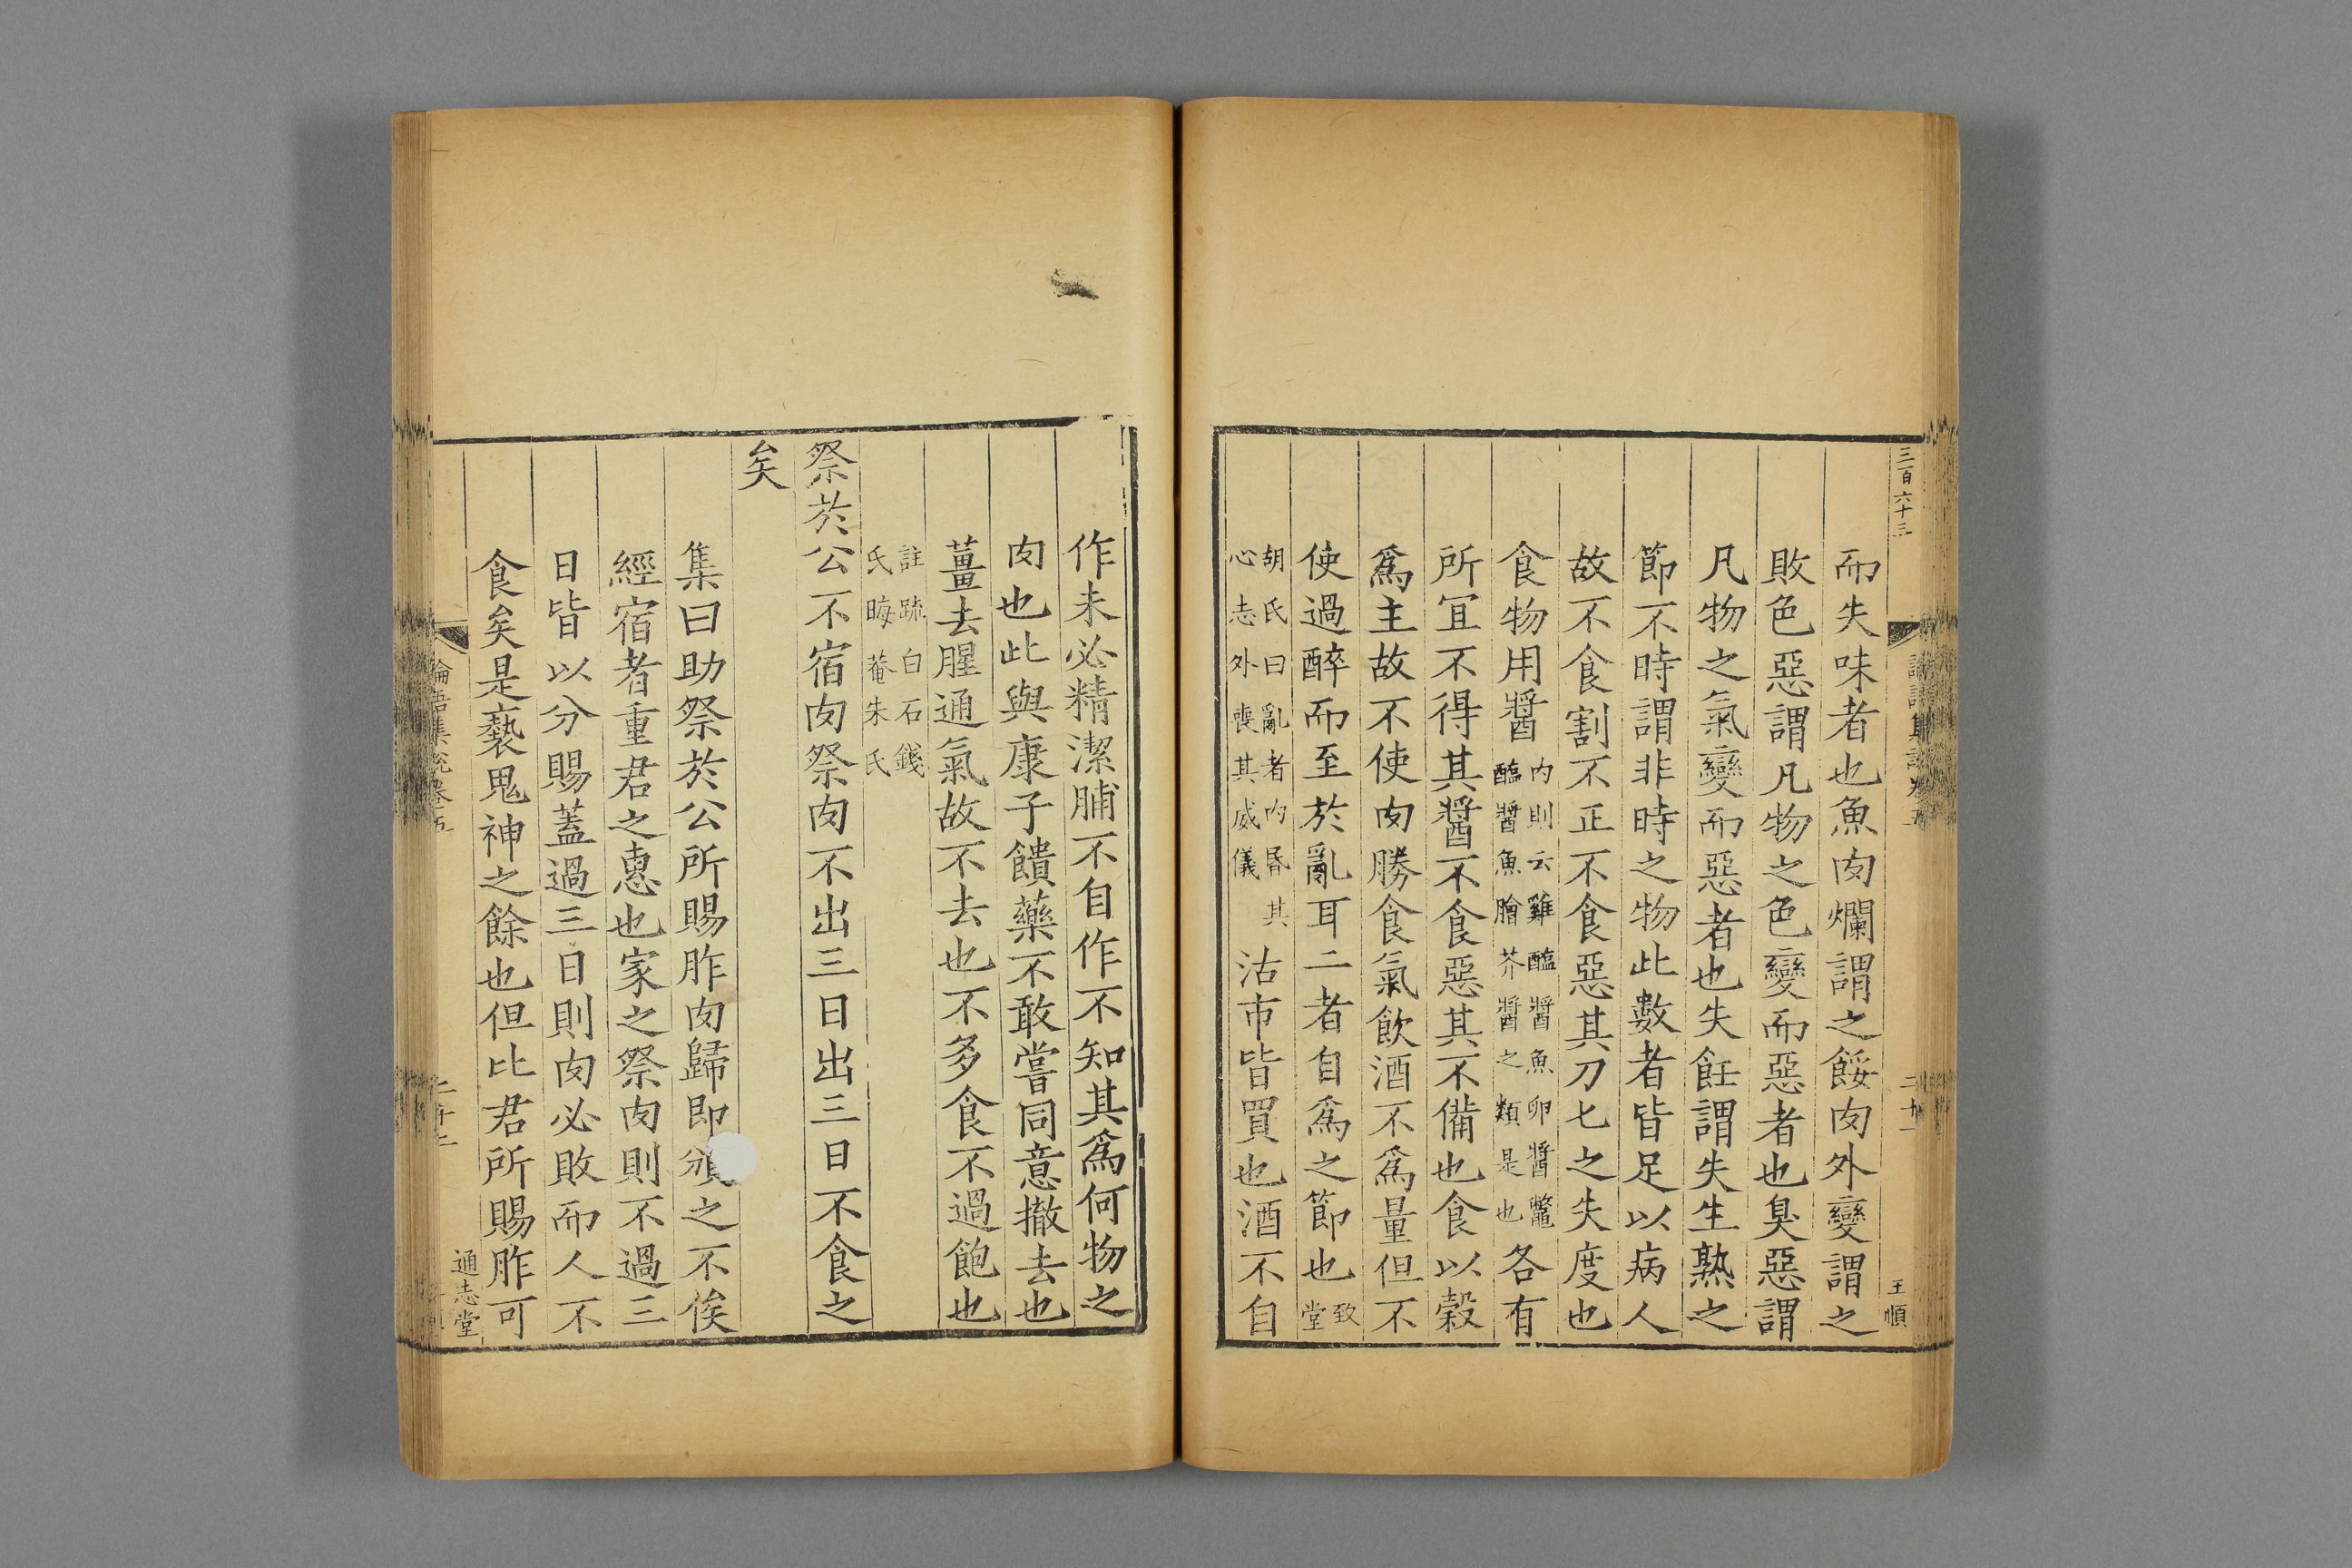 三百六十三
王順
而失味者也魚肉爛謂之餒肉外變謂之
敗色惡謂凡物之色變而惡者也臭惡謂
凡物之氣變而惡者也失飪謂失生熟之
節不時謂非時之物此數者皆足以病人
故不食割不正不食惡其刀匕之失度也
食物用醬內則云雞醢醬魚卵醬鼈醢醬魚膾芥醬之類是也各有
所宜不得其醬不食惡其不備也食以穀
爲主故不使肉勝食氣飲酒不爲量但不
使過醉而至於亂耳二者自爲之節也致堂
胡氏曰亂者內昬其心志外喪其威儀沽市皆買也酒不自
作未必精潔脯不自作不知其爲何物之
肉也此與康子饋藥不敢嘗同意撤去也
薑去腥通氣故不去也不多食不過飽也
註疏白石錢氏晦菴朱氏
祭於公不宿肉祭肉不出三日出三日不食之
矣
集曰助祭於公所賜胙肉歸即頒之不俟
經宿者重君之惠也家之祭肉則不過三
日皆以分賜蓋過三日則肉必敗而人不
食矣是褻鬼神之餘也但比君所賜胙可
論語集說卷五
通志堂